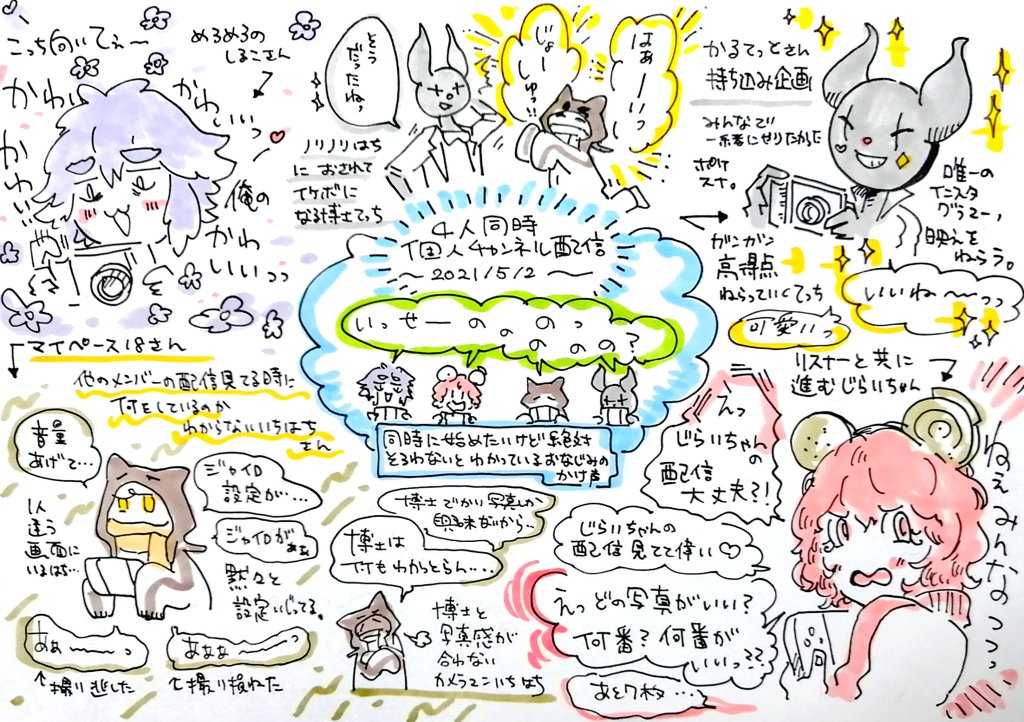 こっち向いてぇ〜
めろめろの
しまこさん
かわいいっ
かわいい
俺の
かわ
いいっっ
どう
だったねっ
じょー
しゅっ
はぁーいっ
ノリノリはち
におされて
イケボに
なる博士てっち
かるてっとさん
持ち込み企画
みんなで
一緒にせりたかした
ポケ
スナ。
唯一の
インスタ
グラマー、
映えを
ねらう。
ガンガン
高得点
ねらっていくてっち
いいね〜っっ
可愛いっ
4人同時
個人チャンネル配信
〜2021/5/2〜
いっせーのののっ
ののの?
同時に始めたいけど絶対
そろわないとわかっているおなじみの
かけ声
マイペース18さん
他のメンバーの配信見てる時に
何をしているのか
わからないいちはち
さん
音量
あげて…
ジャイロ
設定か…
ジャイロがぁぁ
1人
違う
画面に
いるはち…
黙々と
設定いじってる。
あぁ〜っ
↑撮り逃した
あぁぁ〜っ
↑撮り損ねた
博士でかい写真しか
興味ないから…
博士は
イケもわからとらん…
博士と
写真感が
合わない
カメラマンいちはち
リスナーと共に
進むじらいちゃん
えっ
じらいちゃん
の
配信
大丈夫?!
じらいちゃんの
配信見てて偉い♡
えっどの写真がいい?
何番?何番が
いいっ??
あと7枚…
ねぇみんなのっっっ